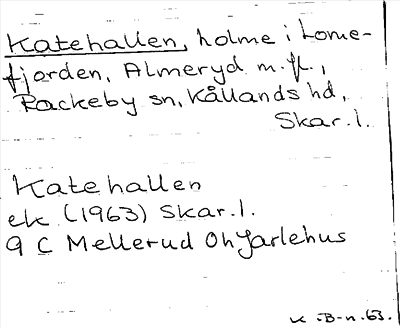 Katehallen, holme i Lome-
fjorden, Almeryd m.fl.,
Rackeby sn, Kållands hd,
Skar.l.
Katehallen
ek (1963) Skar.l.
9 C Mellerud Oh Jarlehus
K.B-n.63.